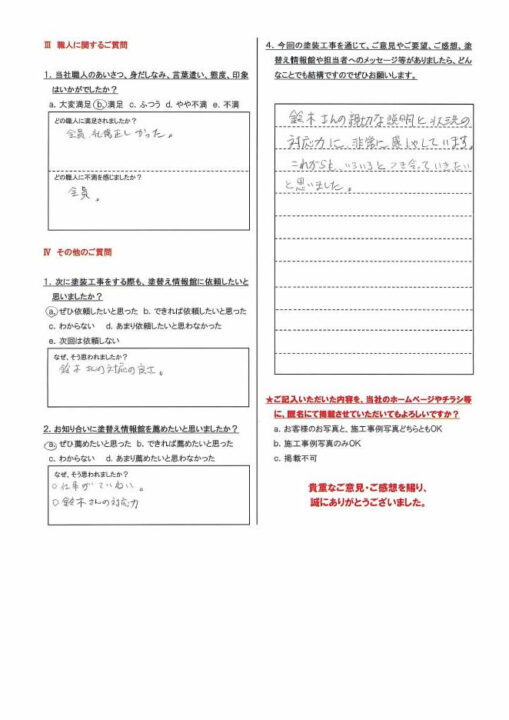 Ⅲ 職人に関するご質問
1. 当社職人のあいさつ、身だしなみ、言葉遣い、態度、印象
はいかがでしたか？
a. 大変満足 b. 満足 c. ふつう d. やや不満 e. 不満
どの職人に満足されましたか？
全員、礼儀正しかった。
どの職人に不満を感じましたか？
全員。
Ⅳ その他のご質問
1. 次に塗装工事をする際も、塗替え情報館に依頼したいと
思いましたか？
a. ぜひ依頼したいと思った b. できれば依頼したいと思った
c. わからない d. あまり依頼したいと思わなかった
e. 次回は依頼しない
なぜ、そう思われましたか？
鈴木さんの対応の良さ。
2. お知り合いに塗替え情報館を薦めたいと思いましたか？
a. ぜひ薦めたいと思った b. できれば薦めたいと思った
c. わからない d. あまり薦めたいと思わなかった
なぜ、そう思われましたか？
○仕事がていねい。
○鈴木さんの対応力
4. 今回の塗装工事を通じて、ご意見やご要望、ご感想、塗
替え情報館や担当者へのメッセージ等がありましたら、どん
なことでも結構ですのでぜひお願いします。
鈴木さんの親切な説明と状況の
対応力に、非常に感しゃしています。
これからも、いろいろとつき合っていきたい
と思いました。
★ご記入いただいた内容を、当社のホームページやチラシ等
に、匿名にて掲載させていただいてもよろしいですか？
a. お客様のお写真と、施工事例写真どちらともOK
b. 施工事例写真のみOK
c. 掲載不可
貴重なご意見・ご感想を賜り、
誠にありがとうございました。